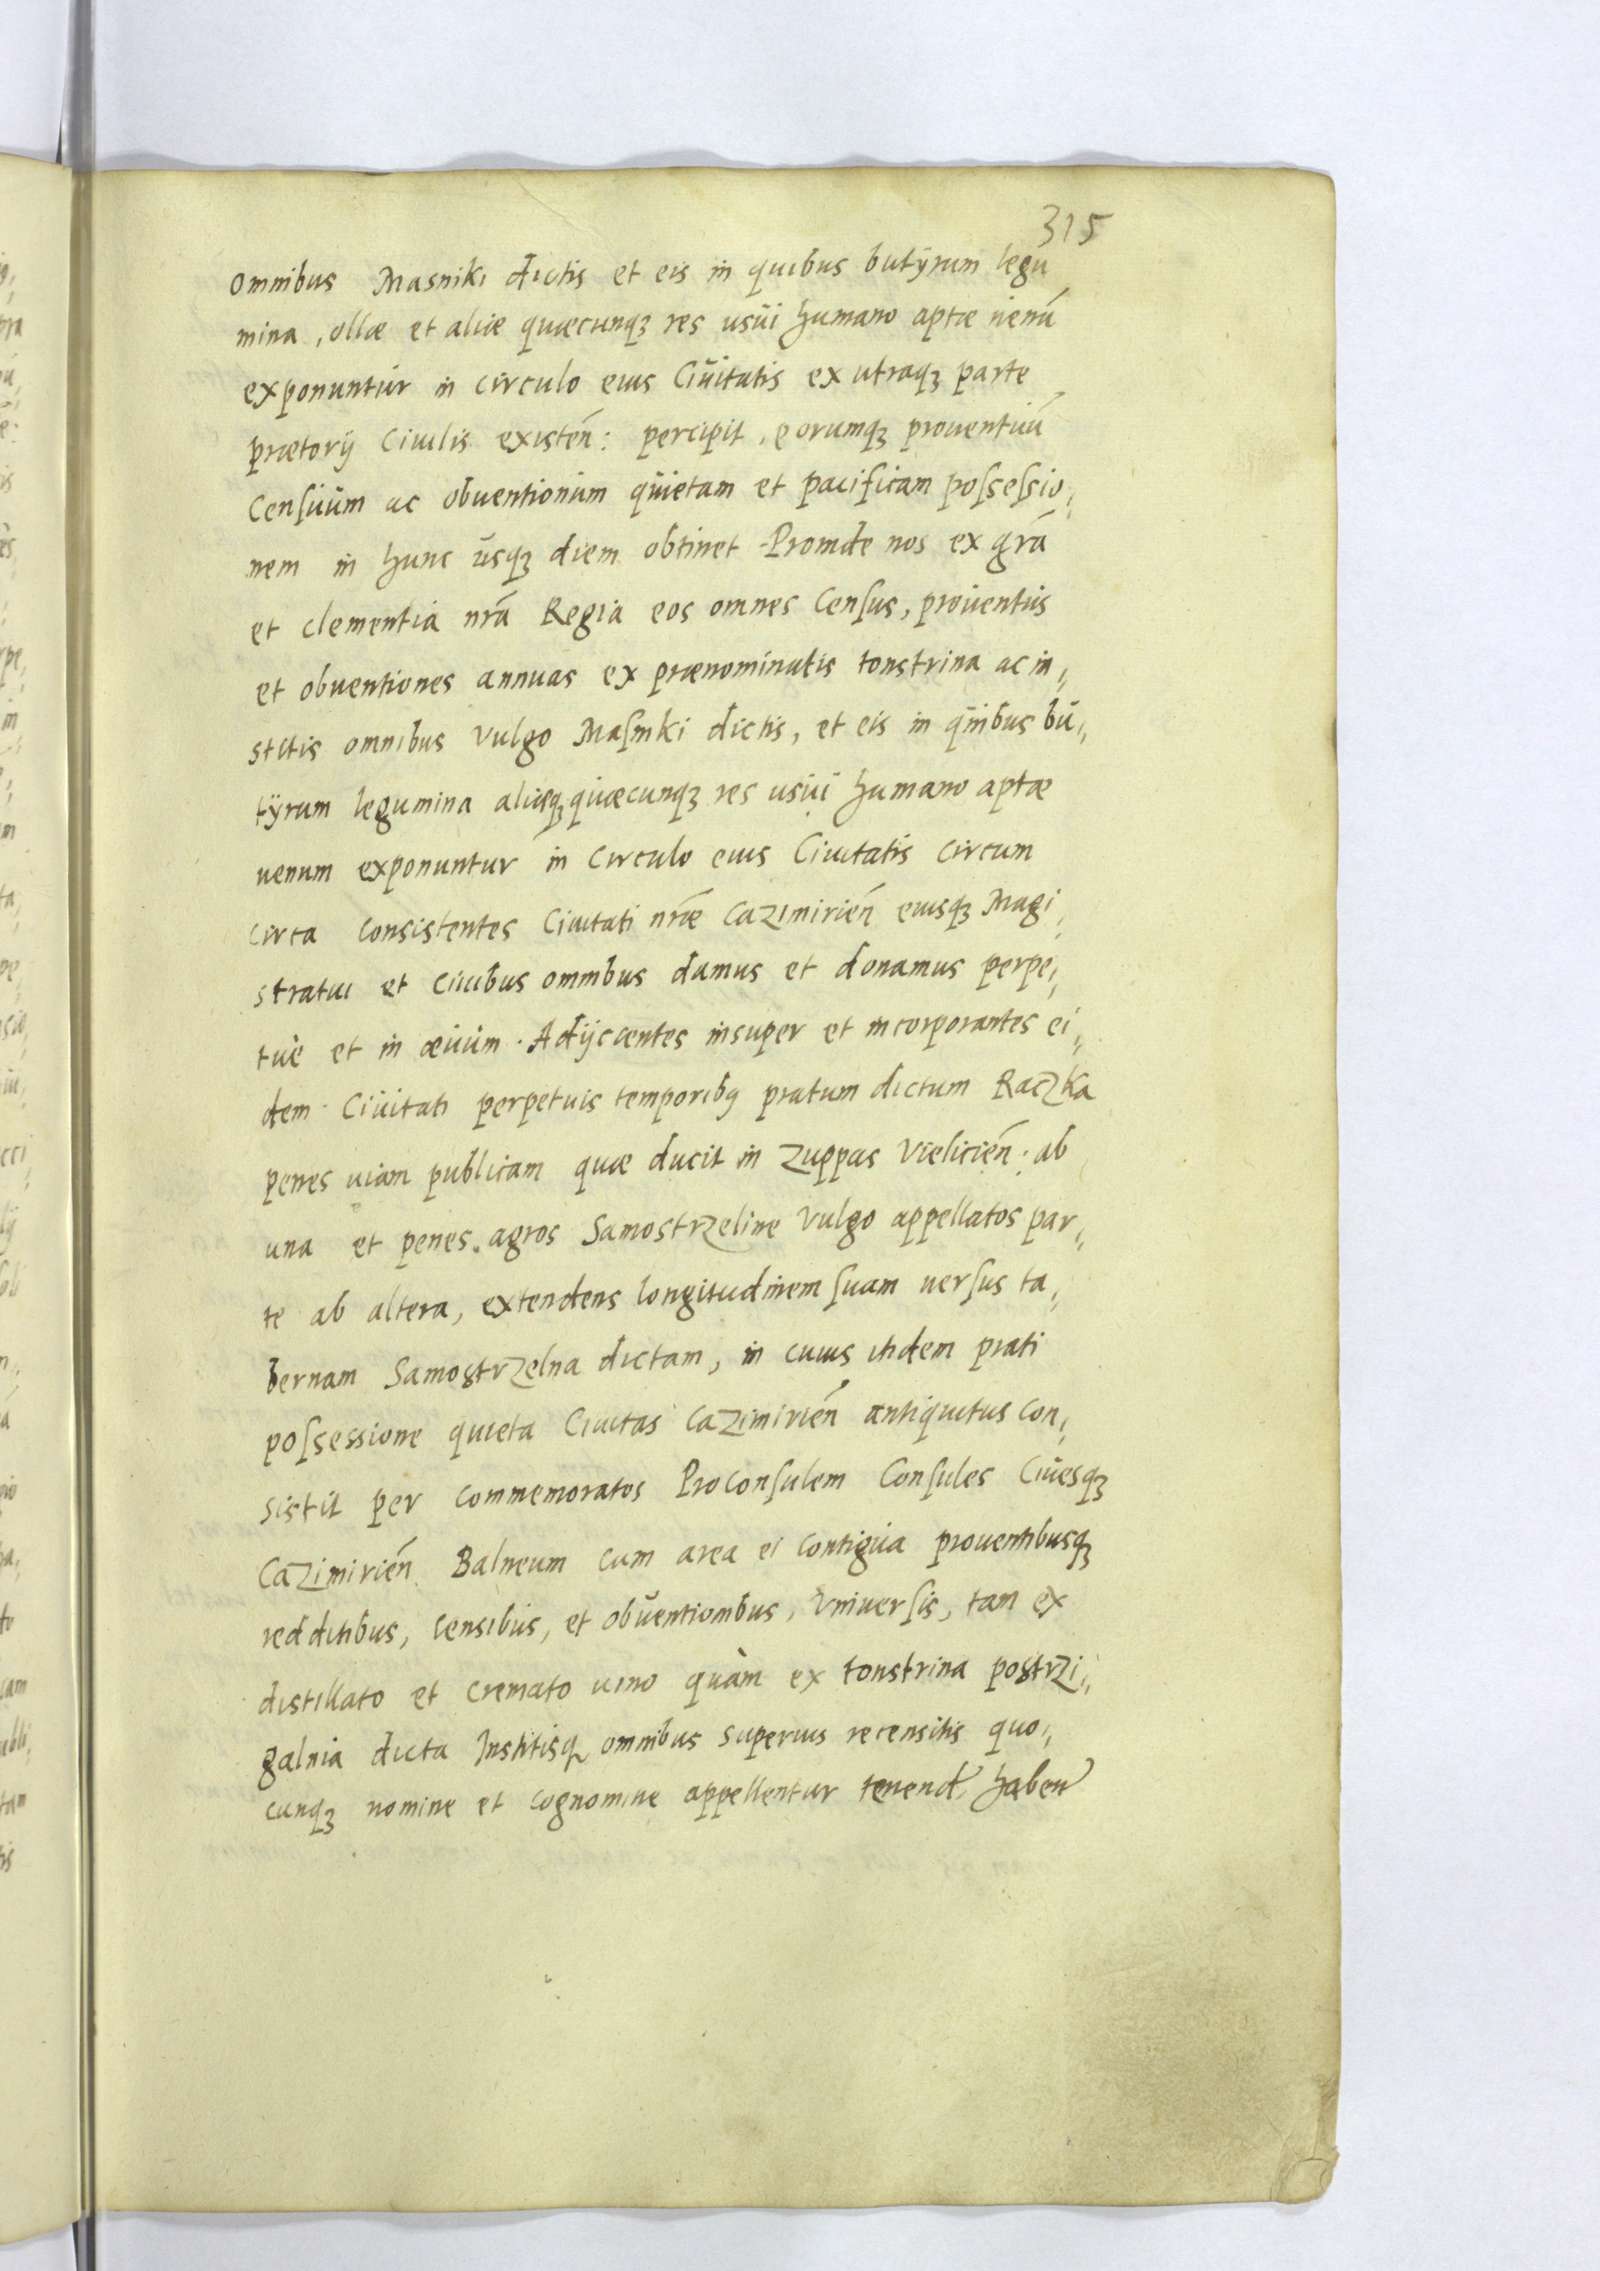 315
omnibus Masniki dictis et eis in quibus butÿrum legu
mina, ollæ et aliæ quæcunqꝫ res usui humano aptæ uenũ
exponuntur in circulo eius Ciuitatis ex utraqꝫ parte
prætorij Ciuilis existeñ: percipit, eorumqꝫ prouentuũ
Censuum ac obuentionum quietam et pacificam poſseſsio„
nem in hunc usqꝫ diem obtinet. Proinde nos ex grã
et clementia nrã Regia eos omnes Cenſus, prouentus
et obuentiones annuas ex prænominatis tonstrina ac in„
stitis omnibus vulgo Maſniki dictis, et eis in quibus bu„
tÿrum legumina aliæqꝫ quæcunqꝫ res usui humano aptæ
uenum exponuntur in Circulo eius Ciuitatis circum
circa consistentes Ciuitati nrãe Cazimirieñ eiusqꝫ Magi„
stratui et ciuibus omnibus damus et donamus perpe„
tuè et in æuum. Adijscentes insuper et incorporantes ei„
dem Ciuitati perpetuis temporibꝫ pratum dictum Raczka
penes uiam publicam quæ ducit in Zuppas Vielicieñ: ab
una et penes agros Samostrzeline vulgo appellatos par„
te ab altera, extendens longitudinem ſuam uerſus ta„
bernam Samostrzelna dictam, in cuius itidem prati
poſsessione quieta Ciuitas Cazimirieñ antiquitus con„
sistit per commemoratos Proconſulem Conſules Ciuesqꝫ
Cazimirieñ Balneum cum area ei contigua prouentibusqꝫ
redditibus, censibus, et obuentionibus, vniuerſis, tam ex
distillato et cremato uino quàm ex tonstrina postrzi„
galnia dicta Institisqꝫ omnibus superius recensitis quo„
cunqꝫ nomine et cognomine appellentur tenend. haben